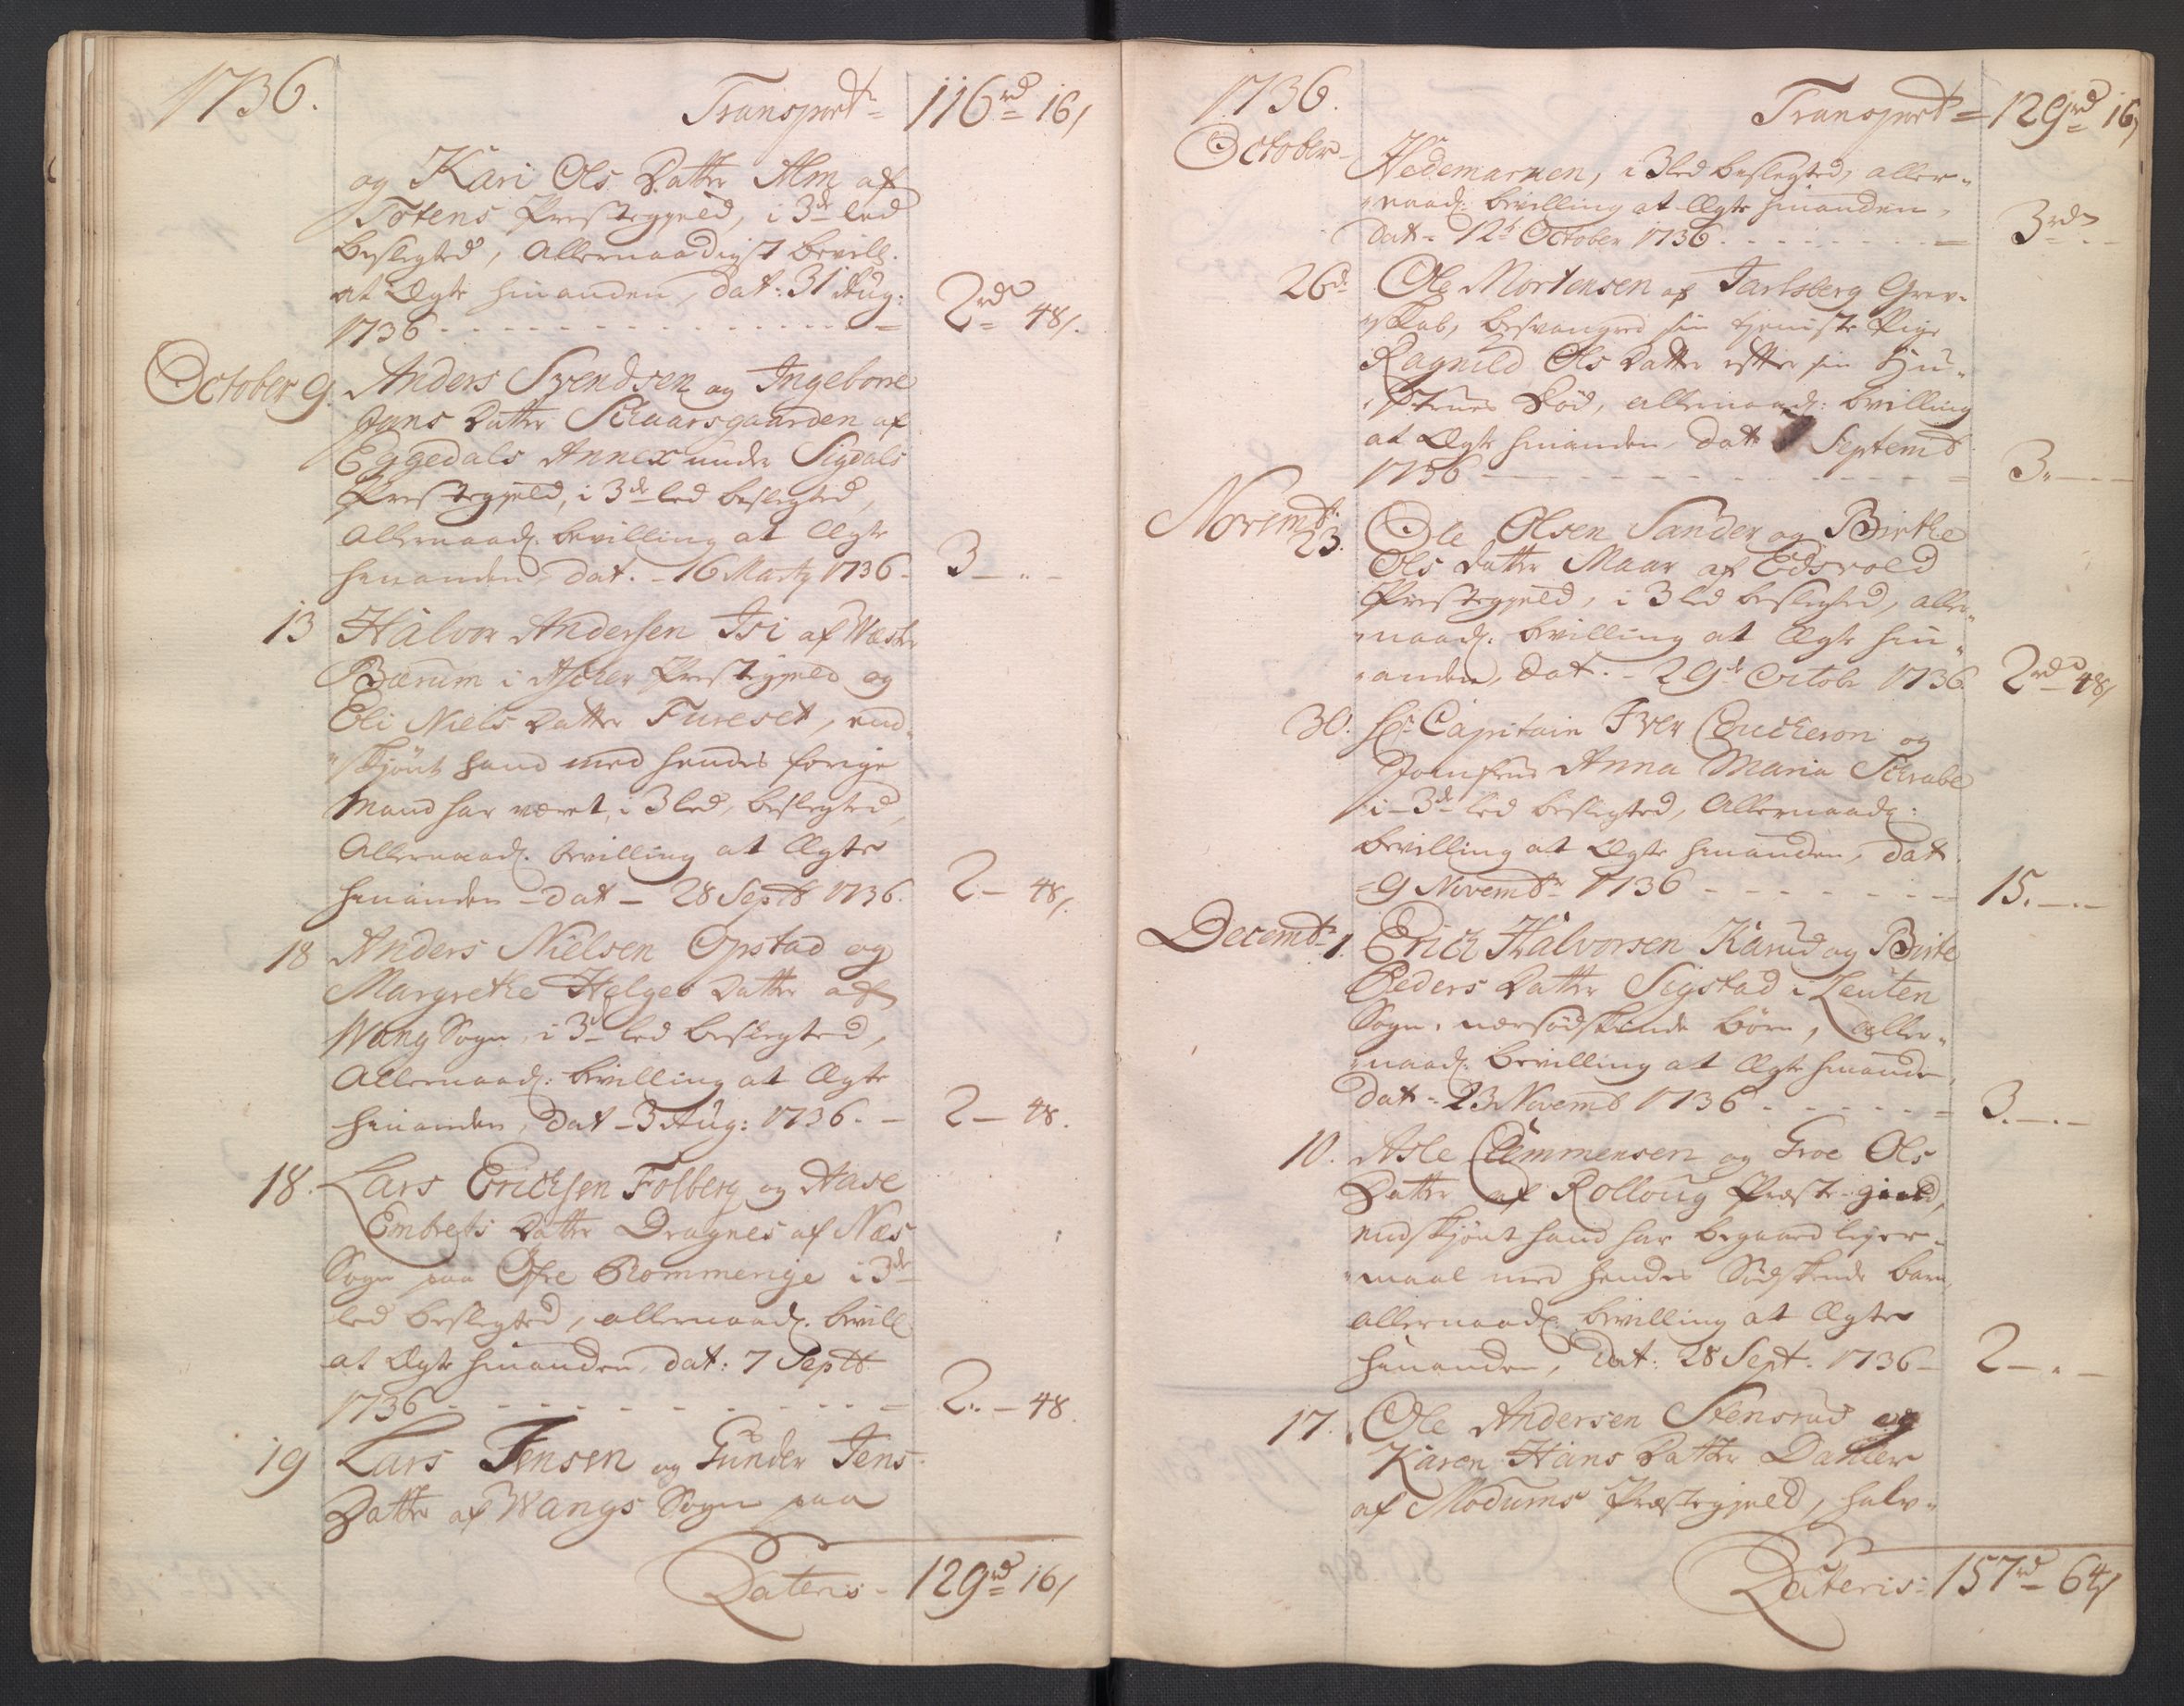 1736.
Transport = 116 rd = 16 /
og Kari Ols Datter Alm af
Totens Presteggield, i 3de led
beslegted, Allernaadigst bevill.
at Ægte hinanden, dat: 31 Aug:
1736 - - - = 2 rd = 48 /.
October 9. Anders Svendsen og Ingeborre
Jans Datter Schaarsgaarden af
Eggedals Annex under Sigdals
Prestegield, i 3de led beslegted,
Allernaad. bevilling at Ægte
hinanden, dat. - 16 Marty 1736 - 3 - .. -
13 Halvor Andersen Isi af Wester
Bærum i Ascher Prestegield og
Eli Niels Datter Fureset, end-
"skiønt hand med hendes forrige
Mand har været, i 3 led, beslegted,
Allernaad. bevilling at Ægte
hinanden - dat - 28 Septb 1736. 2 - 48 /.
18 Anders Nielsen Opstad og
Margrethe Helges Datter af
Wang Sogn, i 3d led beslegted,
Allernaad: bevilling at Ægte
hinanden, dat - 3 Aug: 1736. - 2 - 48.
18. Lars Erichsen Folberg og Aase
Embrets Datter Dragnes af Næs
Sogn paa Øfre Rommerige i 3de
led beslegted, allernaad. bevill.
at Ægte hinanden dat: 7 Septb
1736 - - - = 2. - 48.
19 Lars Jensen og Gunder Jens
Datter af Wangs Sogn paa
Lateris - 129 rd = 16 /
1736.
Transport = 129 rd = 16 /
October Hedemarken, i 3 led beslegted, aller-
"naad: bevilling at Ægte hinanden,
dat - 12t October 1736 - - - = 3 rd - .. -
26de Ole Mortensen af Jarlsberg Grev-
"skab, besvangred sin tieniste Pige
Ragnild Ols Datter efter sin Hu-
"strues Død, allernaad: bevilling
at Ægte hinanden, dat Septemb
1736 - - - = 3. - - -
Novembr.
23. Ole Olsen Sander og Birthe
Ols Datter Maar af Edsvold
Prestegield, i 3 led beslegted, aller-
"naad: bevilling at Ægte hin-
"anden, dat. - 29de Octobr 1736. 2 rd - 48 /
30. Hr. Capitain Iver Coucheron og
Jomfrue Anna Maria Schrabe
i - 3de led beslegted, Allernaad:
bevilling at Ægte hinanden, dat
= 9 Novembr 1736 - - - = 15. - .. -
Decembr 1. Erich Halvorsen Karud og Birte
Peders Datter Sigstad i Leuten
Sogn, nærsødskende børn, aller-
"naad: bevilling at Ægte hinanden,
dat - 23 Novemb 1736 - - - = 3. - .. -
10. Asle Clemmensen og Groe Ols
Datter af Rolloug Præste-gield,
endskiønt hand har begaaed leyer-
"maal med hendes Sødskende barn,
allernaad. bevilling at Ægte
hinanden, dat: 28 Sept. 1736 - 2 - .. -
17. Ole Andersen Stensrud og
Karen Hans Datter Dahler
af Modums Præstegield, halv-
Lateris - 157 rd - 64 /